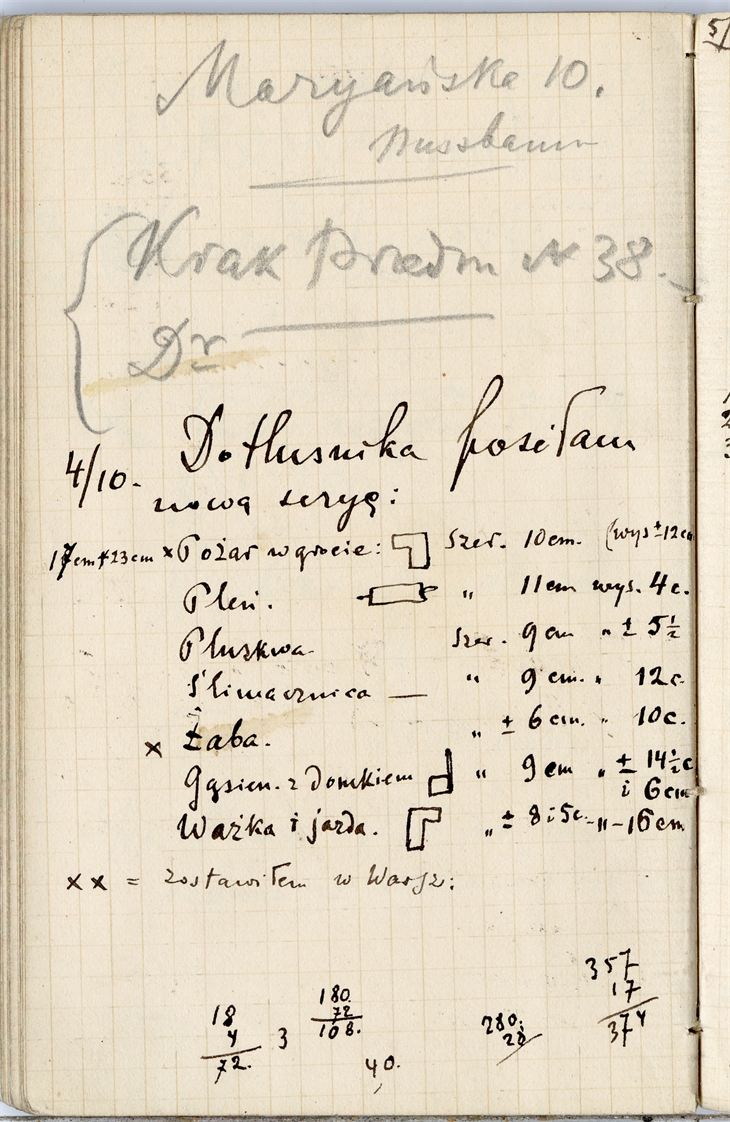 Maryańska 10.
Nussbaum
Krak Przedm № 38.
Dr
4/10. Do tłusnika posiłam
nową seryę:
× Pożar w grocie: Szer. 10 cm. (wys ± 12 cm
Pleń. " 11 cm wys. 4 c.
Pluskwa. Szer. 9 cm " ± 5½
Ślimacznica — " 9 cm. " 12 c.
× Żaba. " ± 6 cm. " 10 c.
Gąsien. z domkiem " 9 cm " ± 14½ c
i 6 cm
Ważka i jazda. " ± 8 i 5 c. - " - 16 cm
× × = zostawiłem w Warsz:
357
17
374
180.
72
108.
18
4
72.
3
280.
28
40.
5/